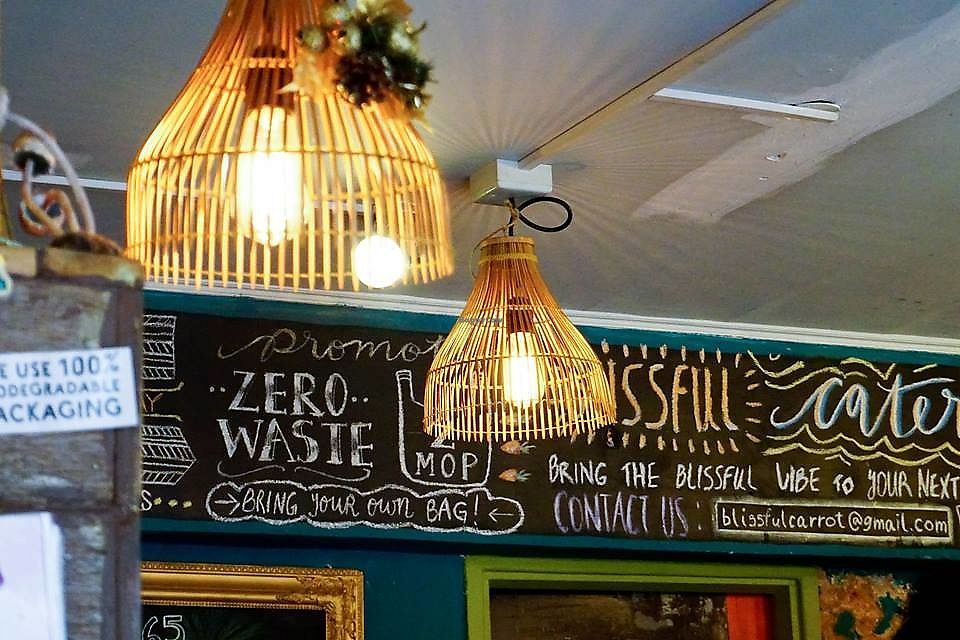 USE 100%
PACKAGING
ZERO
WASTE
MOP
BRING YOUR OWN BAG!
BRING THE BLISSFUL VIBE TO YOUR NEXT
CONTACT US:
blissfulcarrot@gmail.com
65